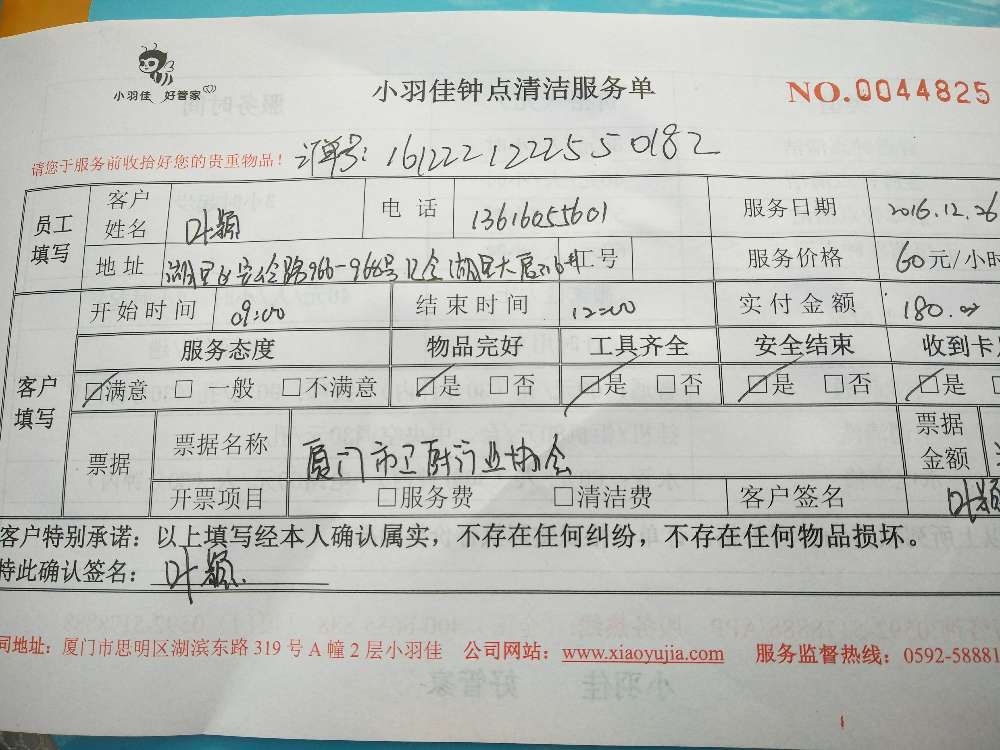 小羽佳 好管家
小羽佳钟点清洁服务单
NO.0044825
请您于服务前收拾好您的贵重物品!
订单号: 16122212225550182
员工填写 客户姓名 叶颖 电话 13616055601 服务日期 2016.12.26
地址 湖里区安岭路966-968号 湖里大厦 工号 服务价格 60元/小时
开始时间 09:00 结束时间 12:00 实付金额 180.00
客户填写 服务态度 物品完好 工具齐全 安全结束 收到卡
☑满意 □一般 □不满意 ☑是 □否 ☑是 □否 ☑是 □否 ☑是
票据 票据名称 厦门市卫厨行业协会 票据金额
开票项目 □服务费 □清洁费 客户签名 叶颖
客户特别承诺:以上填写经本人确认属实,不存在任何纠纷,不存在任何物品损坏。
特此确认签名: 叶颖
司地址:厦门市思明区湖滨东路 319 号 A 幢 2 层小羽佳 公司网站:www.xiaoyujia.com 服务监督热线:0592-58881